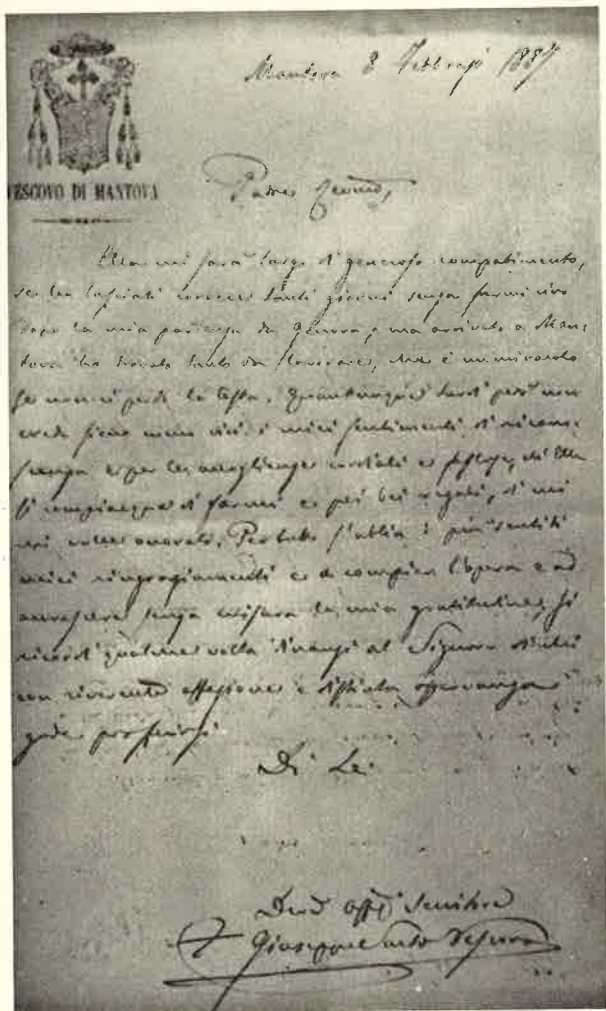 Mantova 8 Febbrajo 1887
VESCOVO DI MANTOVA
Padre
Ella mi sarà largo di generoso compatimento,
se ho lasciati correre tanti giorni senza farmi vivo
dopo la mia partenza da Genova, ma arrivato a Man
tova ho trovato tanto da lavorare, che è un miracolo
se non ci perdo la testa. però non
creda sieno meno vivi i miei sentimenti di ricono
scenza e per le accoglienze cordiali e di Ella
si compiacque di farmi e pei bei regali, di cui
mi volle onorato. Per tutto s'abbia i più sentiti
miei ringraziamenti e a compier l'opera e ad
accrescere senza misura la mia gratitudine, si
ricordi qualche volta dinanzi al Signore di chi
con riverente affezione e distinta osservanza
gode professarsi
Di Lei
Devo affo Servitore
+ Giuseppe Vescovo